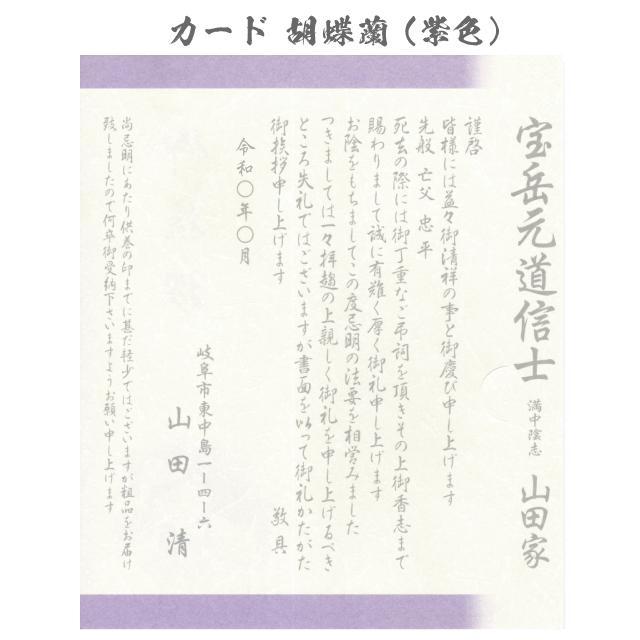 カード 胡蝶蘭（紫色）
宝岳元道信士
満中陰志
山田家
謹啓
皆様には益々御清祥の事と御慶び申し上げます
先般 亡父 忠平
死去の際には御丁重なご弔詞を頂きその上御香志まで
賜わりまして誠に有難く厚く御礼申し上げます
お陰をもちましてこの度忌明の法要を相営みました
つきましては一々拝趨の上親しく御礼を申し上げるべき
ところ失礼ではございますが書面を以って御礼かたがた
御挨拶申し上げます
敬具
令和〇年〇月
岐阜市東中島一ー四ー六
山田 清
尚忌明にあたり供養の印までに甚だ軽少ではございますが粗品をお届け
致しましたので何卒御受納下さいますようお願い申し上げます